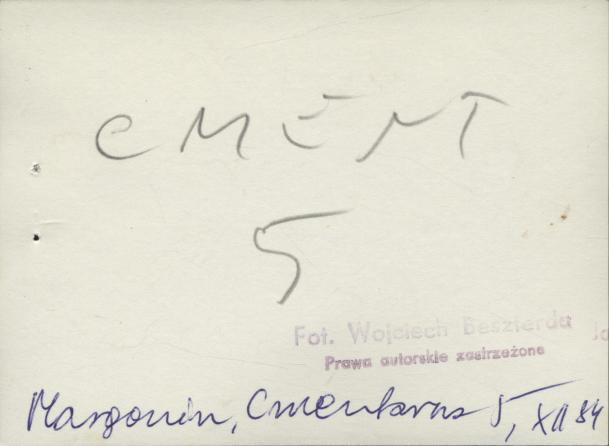 CMENT
5
Fot. Wojciech Beszterda
Prawa autorskie zastrzeżone
Margonin, Cmentarna 5, XII 84